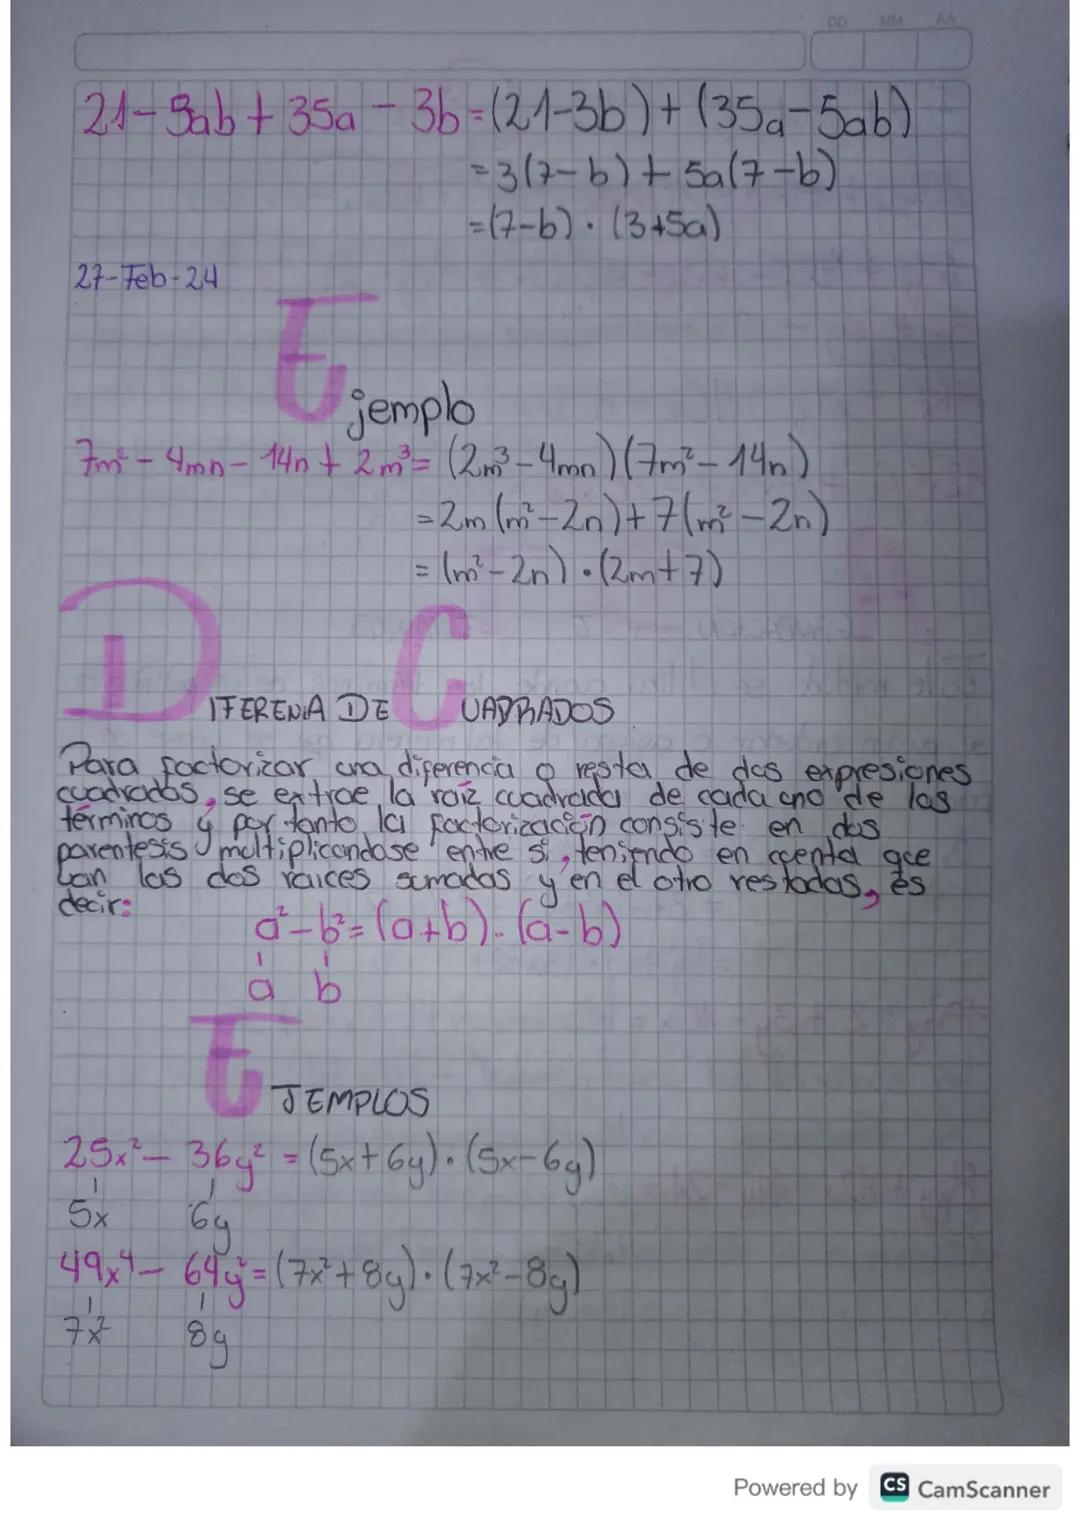 DD MM AA
21-5ab + 35a - 3b = (21-3b) + (35a-5ab)
= 3(7-b) + 5a(7-b)
= (7-b) · (3+5a)
27-Feb-24
Ejemplo
7m² - 4mn - 14n + 2m³ = (2m³-4mn)(7m²-14n)
= 2m(m²-2n) + 7(m²-2n)
= (m²-2n) · (2m+7)
DIFERENIA DE CUADRADOS
Para factorizar una diferencia o resta de dos expresiones
cuadradas, se extrae la raiz cuadrada de cada uno de las
términos y por tanto la factorización consiste en dos
parentesis multiplicandose entre si, teniendo en cuenta que
van las dos raices sumadas y en el otro restadas, es
decir:
a²-b² = (a+b)·(a-b)
a b
EJEMPLOS
25x² - 36y² = (5x+6y)·(5x-6y)
5x 6y
49x⁴ - 64y² = (7x²+8y)·(7x²-8y)
7x² 8y
Powered by CS CamScanner